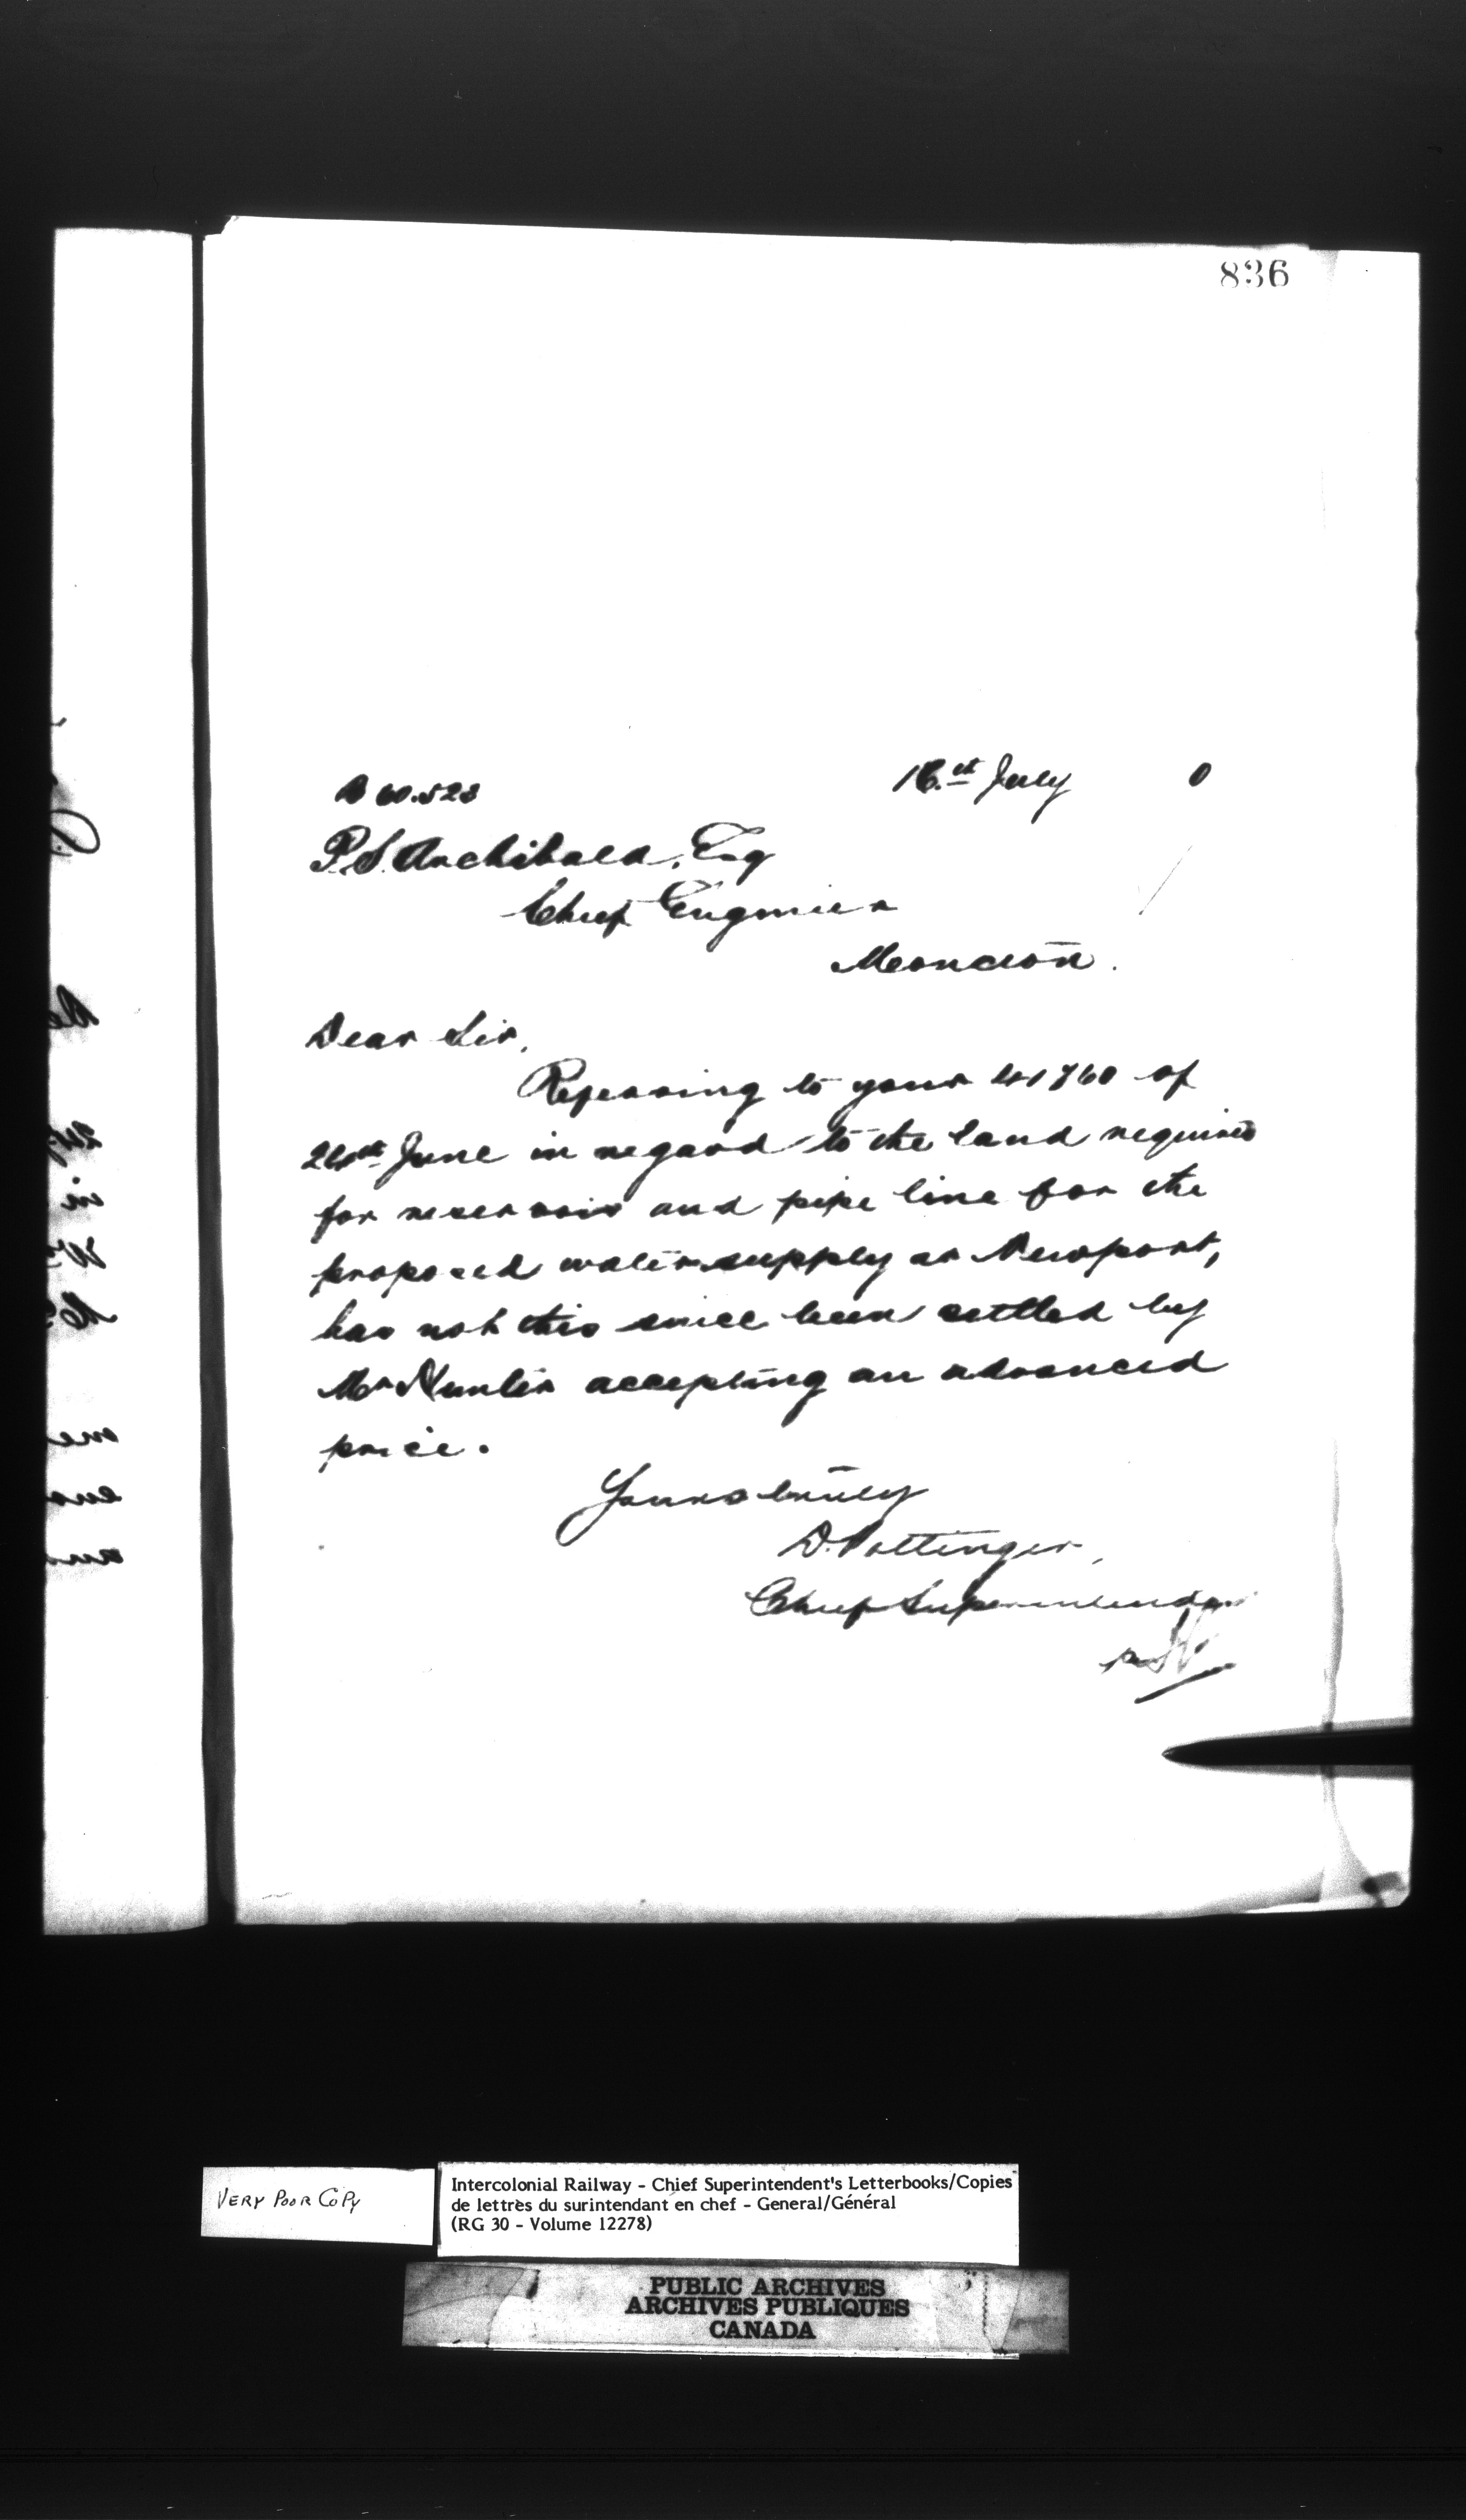 836
16th July 0
P.S. Archibald, Esq
Chief Engineer
Moncton.
Dear Sir,
Referring to yours of
June in regard to the land required
for reservoir and pipe line for the
proposed water supply at Newport,
has not this since been settled by
Mr Hunter accepting an advanced
price.
Yours truly
D. Pottinger,
Chief Superintendent
VERY POOR COPY
Intercolonial Railway - Chief Superintendent's Letterbooks/Copies
de lettres du surintendant en chef - General/Général
(RG 30 - Volume 12278)
PUBLIC ARCHIVES
ARCHIVES PUBLIQUES
CANADA